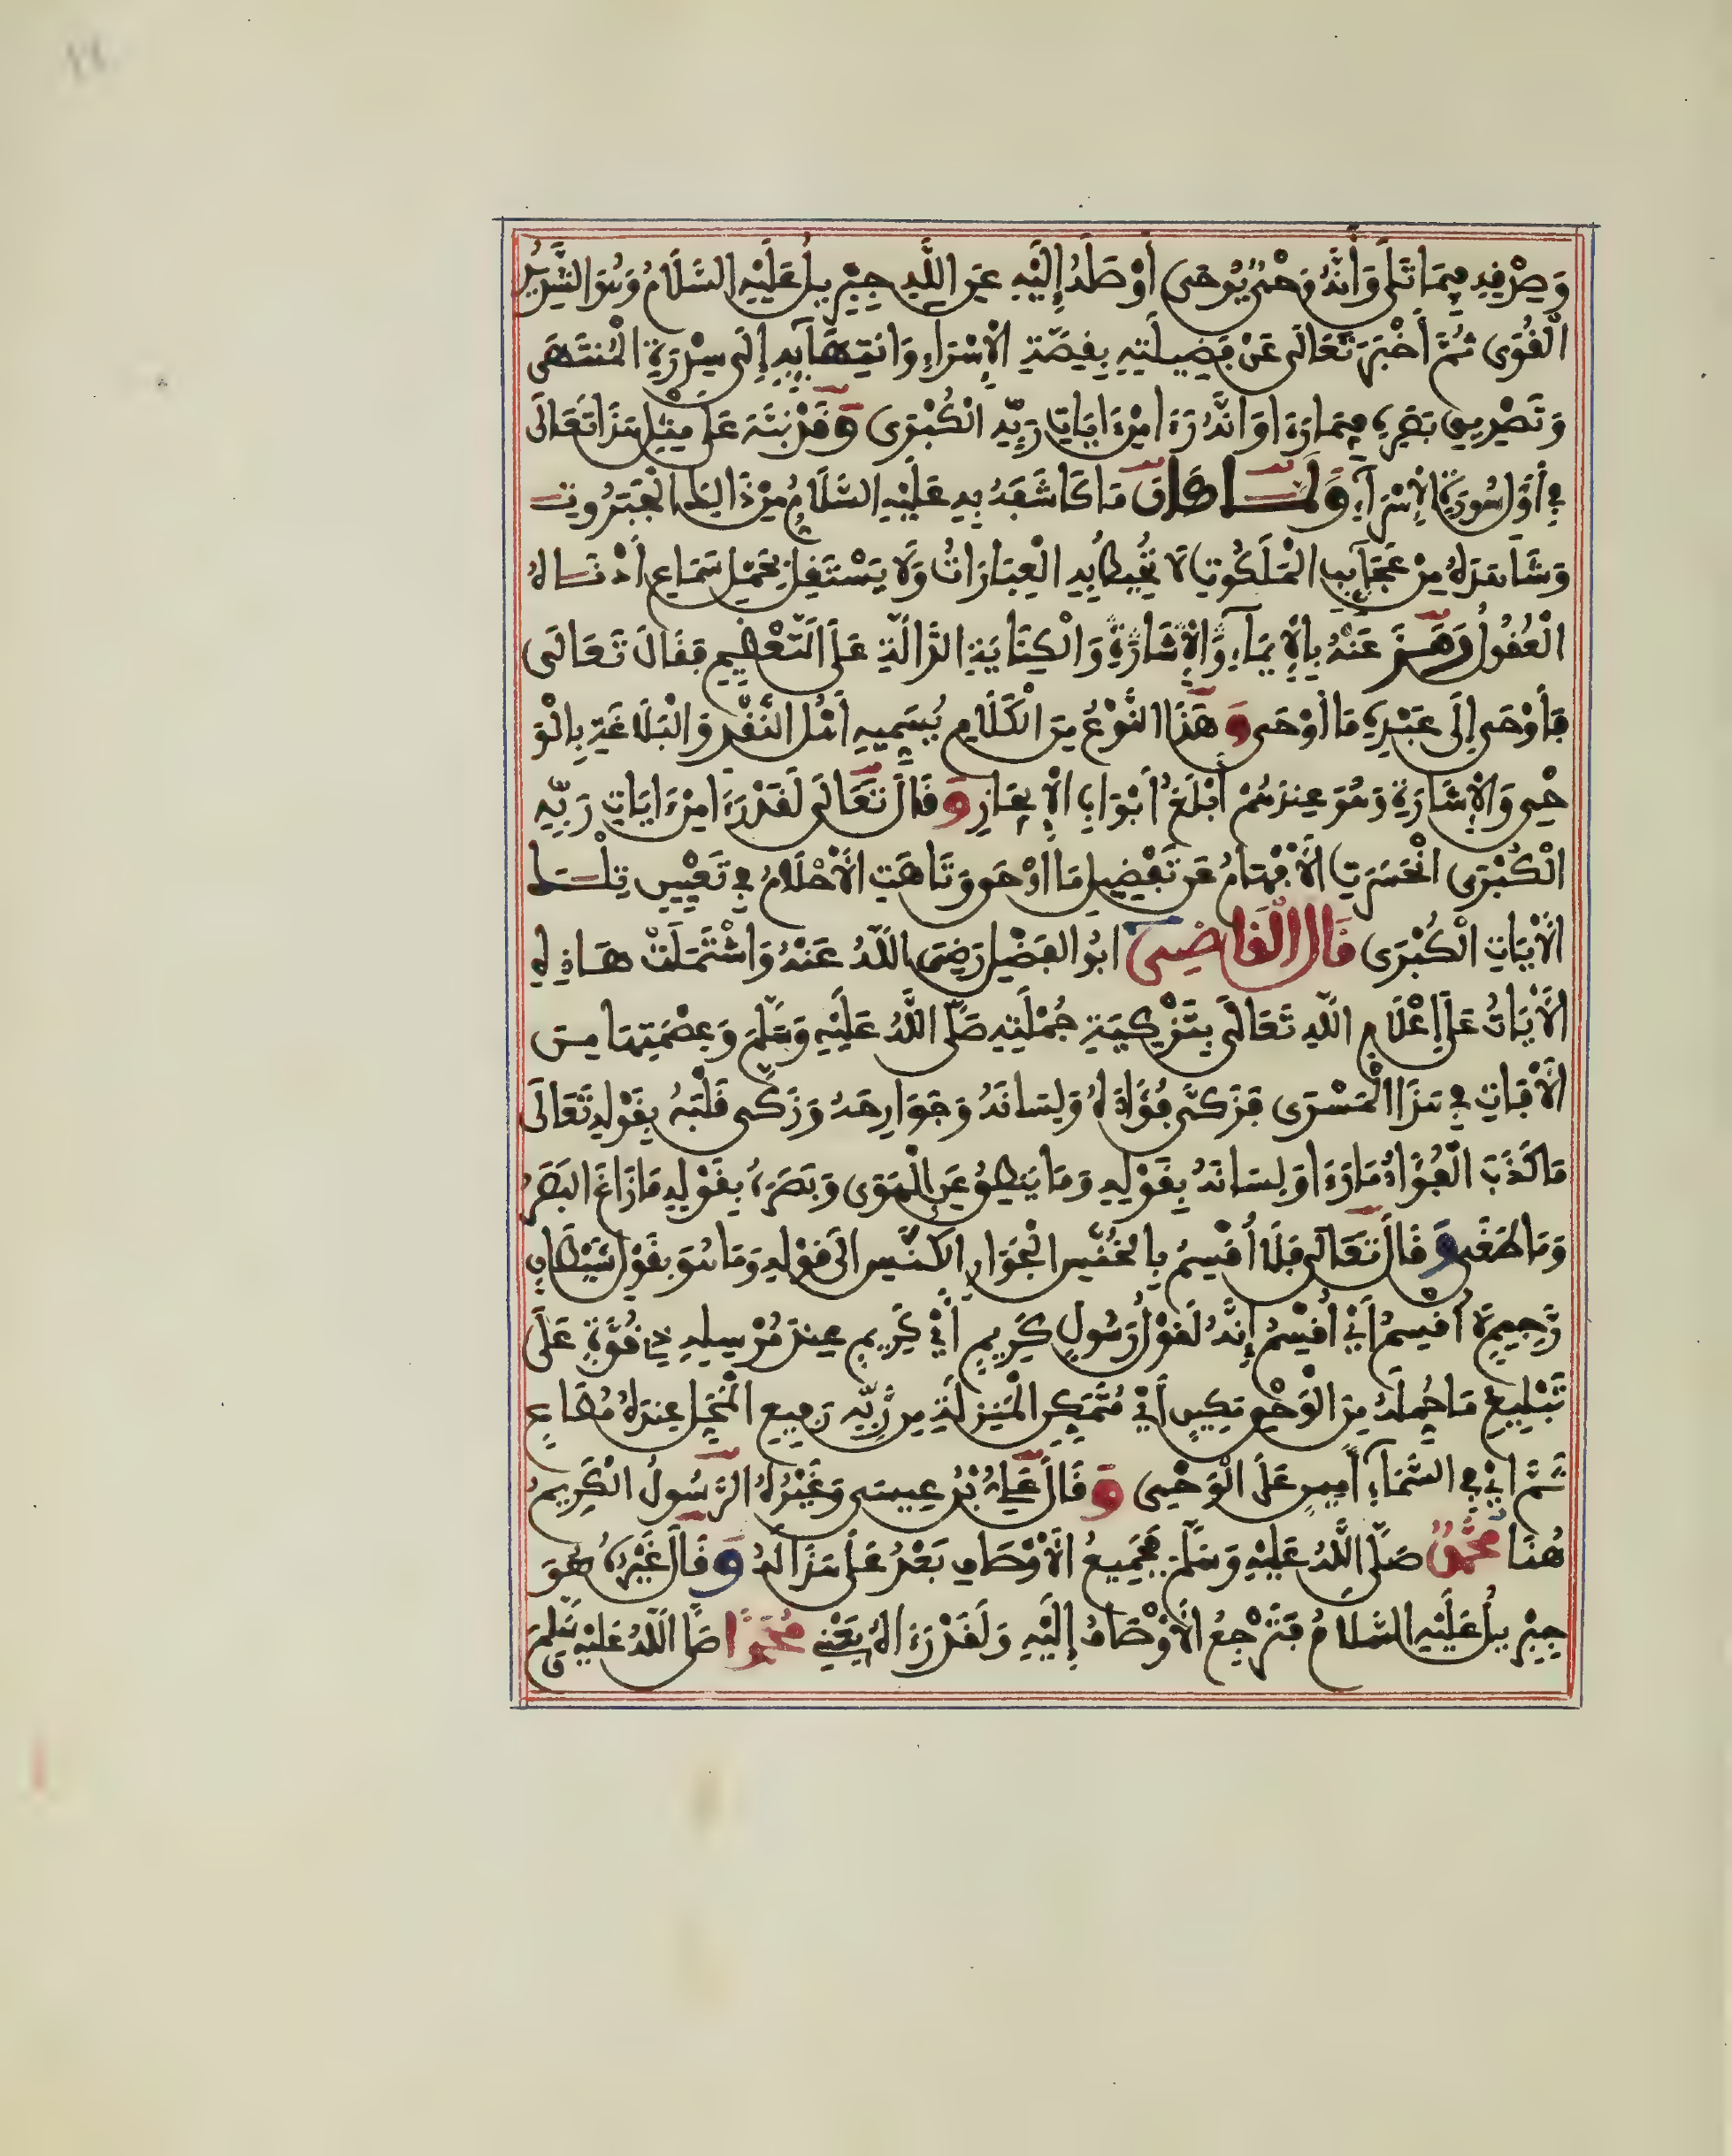 وَصِدْقِهِ فِيمَا تَلَى وَأَنَّهُ وَحْيٌ يُوحَى أَوْصَلَهُ إِلَيْهِ عَنِ اللَّهِ جِبْرِيلُ عَلَيْهِ السَّلَامُ وَهُوَ الشَّدِيدُ
الْقُوَى ثُمَّ أَخْبَرَ تَعَالَى عَنْ فَضِيلَتِهِ بِقِصَّةِ الْإِسْرَاءِ وَانتِهَائِهِ إِلَى سِدْرَةِ الْمُنتَهَى
وَتَصْدِيقِ بَصَرِهِ فِيمَا رَءَا وَأَنَّهُ رَءَا مِنْ ءَايَاتِ رَبِّهِ الْكُبْرَى وَقَدْ نَبَّهَ عَلَى مِثْلِ هَذَا تَعَالَى
فِي أَوَّلِ سُورَةِ الْإِسْرَاءِ وَلَمَّا كَانَ مَا كَاشَفَهُ بِهِ عَلَيْهِ السَّلَامُ مِنْ ذَالِكَ الْجَبَرُوتِ
وَشَاهَدَهُ مِنْ عَجَائِبِ الْمَلَكُوتِ لَا تُحِيطُ بِهِ الْعِبَارَاتُ وَلَا يَسْتَقِلُّ بِحَمْلِ سَمَاعِ أَدْنَاهُ
الْعُقُولُ رَمَزَ عَنْهُ بِالْإِيمَاءِ وَالْإِشَارَةِ وَالْكِنَايَةِ الدَّالَّةِ عَلَى التَّعْظِيمِ فَقَالَ تَعَالَى
فَأَوْحَى إِلَى عَبْدِهِ مَا أَوْحَى وَهَذَا النَّوْعُ مِنَ الْكَلَامِ يُسَمِّيهِ أَهْلُ النَّقْدِ وَالْبَلَاغَةِ بِالْوَ
حْيِ وَالْإِشَارَةِ وَهُوَ عِندَهُمْ أَبْلَغُ أَبْوَابِ الْإِيجَازِ وَقَالَ تَعَالَى لَقَدْ رَءَا مِنْ ءَايَاتِ رَبِّهِ
الْكُبْرَى انْحَسَرَتِ الْأَفْهَامُ عَنْ تَفْصِيلِ مَا أَوْحَى وَتَاهَتِ الْأَحْلَامُ فِي تَعْيِينِ تِلْكَ
الْأَيَاتِ الْكُبْرَى قَالَ الْقَاضِي أَبُو الْفَضْلِ رَضِيَ اللَّهُ عَنْهُ وَاشْتَمَلَتْ هَاذِهِ
الْأَيَاتُ عَلَى إِعْلَامِ اللَّهِ تَعَالَى بِتَزْكِيَةِ جُمْلَتِهِ صَلَّى اللَّهُ عَلَيْهِ وَسَلَّمَ وَعِصْمَتِهَا مِنَ
الْأَفَاتِ فِي هَذَا الْمَسْرَى فَزَكَّى فُؤَادَهُ وَلِسَانَهُ وَجَوَارِحَهُ وَزَكَّى قَلْبَهُ بِقَوْلِهِ تَعَالَى
مَا كَذَبَ الْفُؤَادُ مَا رَءَا وَلِسَانَهُ بِقَوْلِهِ وَمَا يَنطِقُ عَنِ الْهَوَى وَبَصَرَهُ بِقَوْلِهِ مَا زَاغَ الْبَصَرُ
وَمَا طَغَى وَقَالَ تَعَالَى فَلَا أُقْسِمُ بِالْخُنَّسِ الْجَوَارِ الْكُنَّسِ إِلَى قَوْلِهِ وَمَا هُوَ بِقَوْلِ شَيْطَانٍ
رَّجِيمٍ لَا أُقْسِمُ أَيْ أُقْسِمُ إِنَّهُ لَقَوْلُ رَسُولٍ كَرِيمٍ أَيْ كَرِيمٍ عِندَ مُرْسِلِهِ ذِي قُوَّةٍ عَلَى
تَبْلِيغِ مَا حُمِّلَهُ مِنَ الْوَحْيِ مَكِينٍ أَيْ مُتَمَكِّنِ الْمَنزِلَةِ مِن رَّبِّهِ رَفِيعِ الْمَحَلِّ عِندَهُ مُطَاعٍ
ثَمَّ أَيْ فِي السَّمَاءِ أَمِينٍ عَلَى الْوَحْيِ وَقَالَ عَلِيُّ بْنُ عِيسَى وَغَيْرُهُ الرَّسُولُ الْكَرِيمُ
هُنَا مُحَمَّدٌ صَلَّى اللَّهُ عَلَيْهِ وَسَلَّمَ فَجَمِيعُ الْأَوْصَافِ بَعْدُ عَلَى هَذَا لَهُ وَقَالَ غَيْرُهُ هُوَ
جِبْرِيلُ عَلَيْهِ السَّلَامُ فَتَرْجِعُ الْأَوْصَافُ إِلَيْهِ وَلَقَدْ رَءَاهُ يَعْنِي مُحَمَّدًا صَلَّى اللَّهُ عَلَيْهِ وَسَلَّمَ